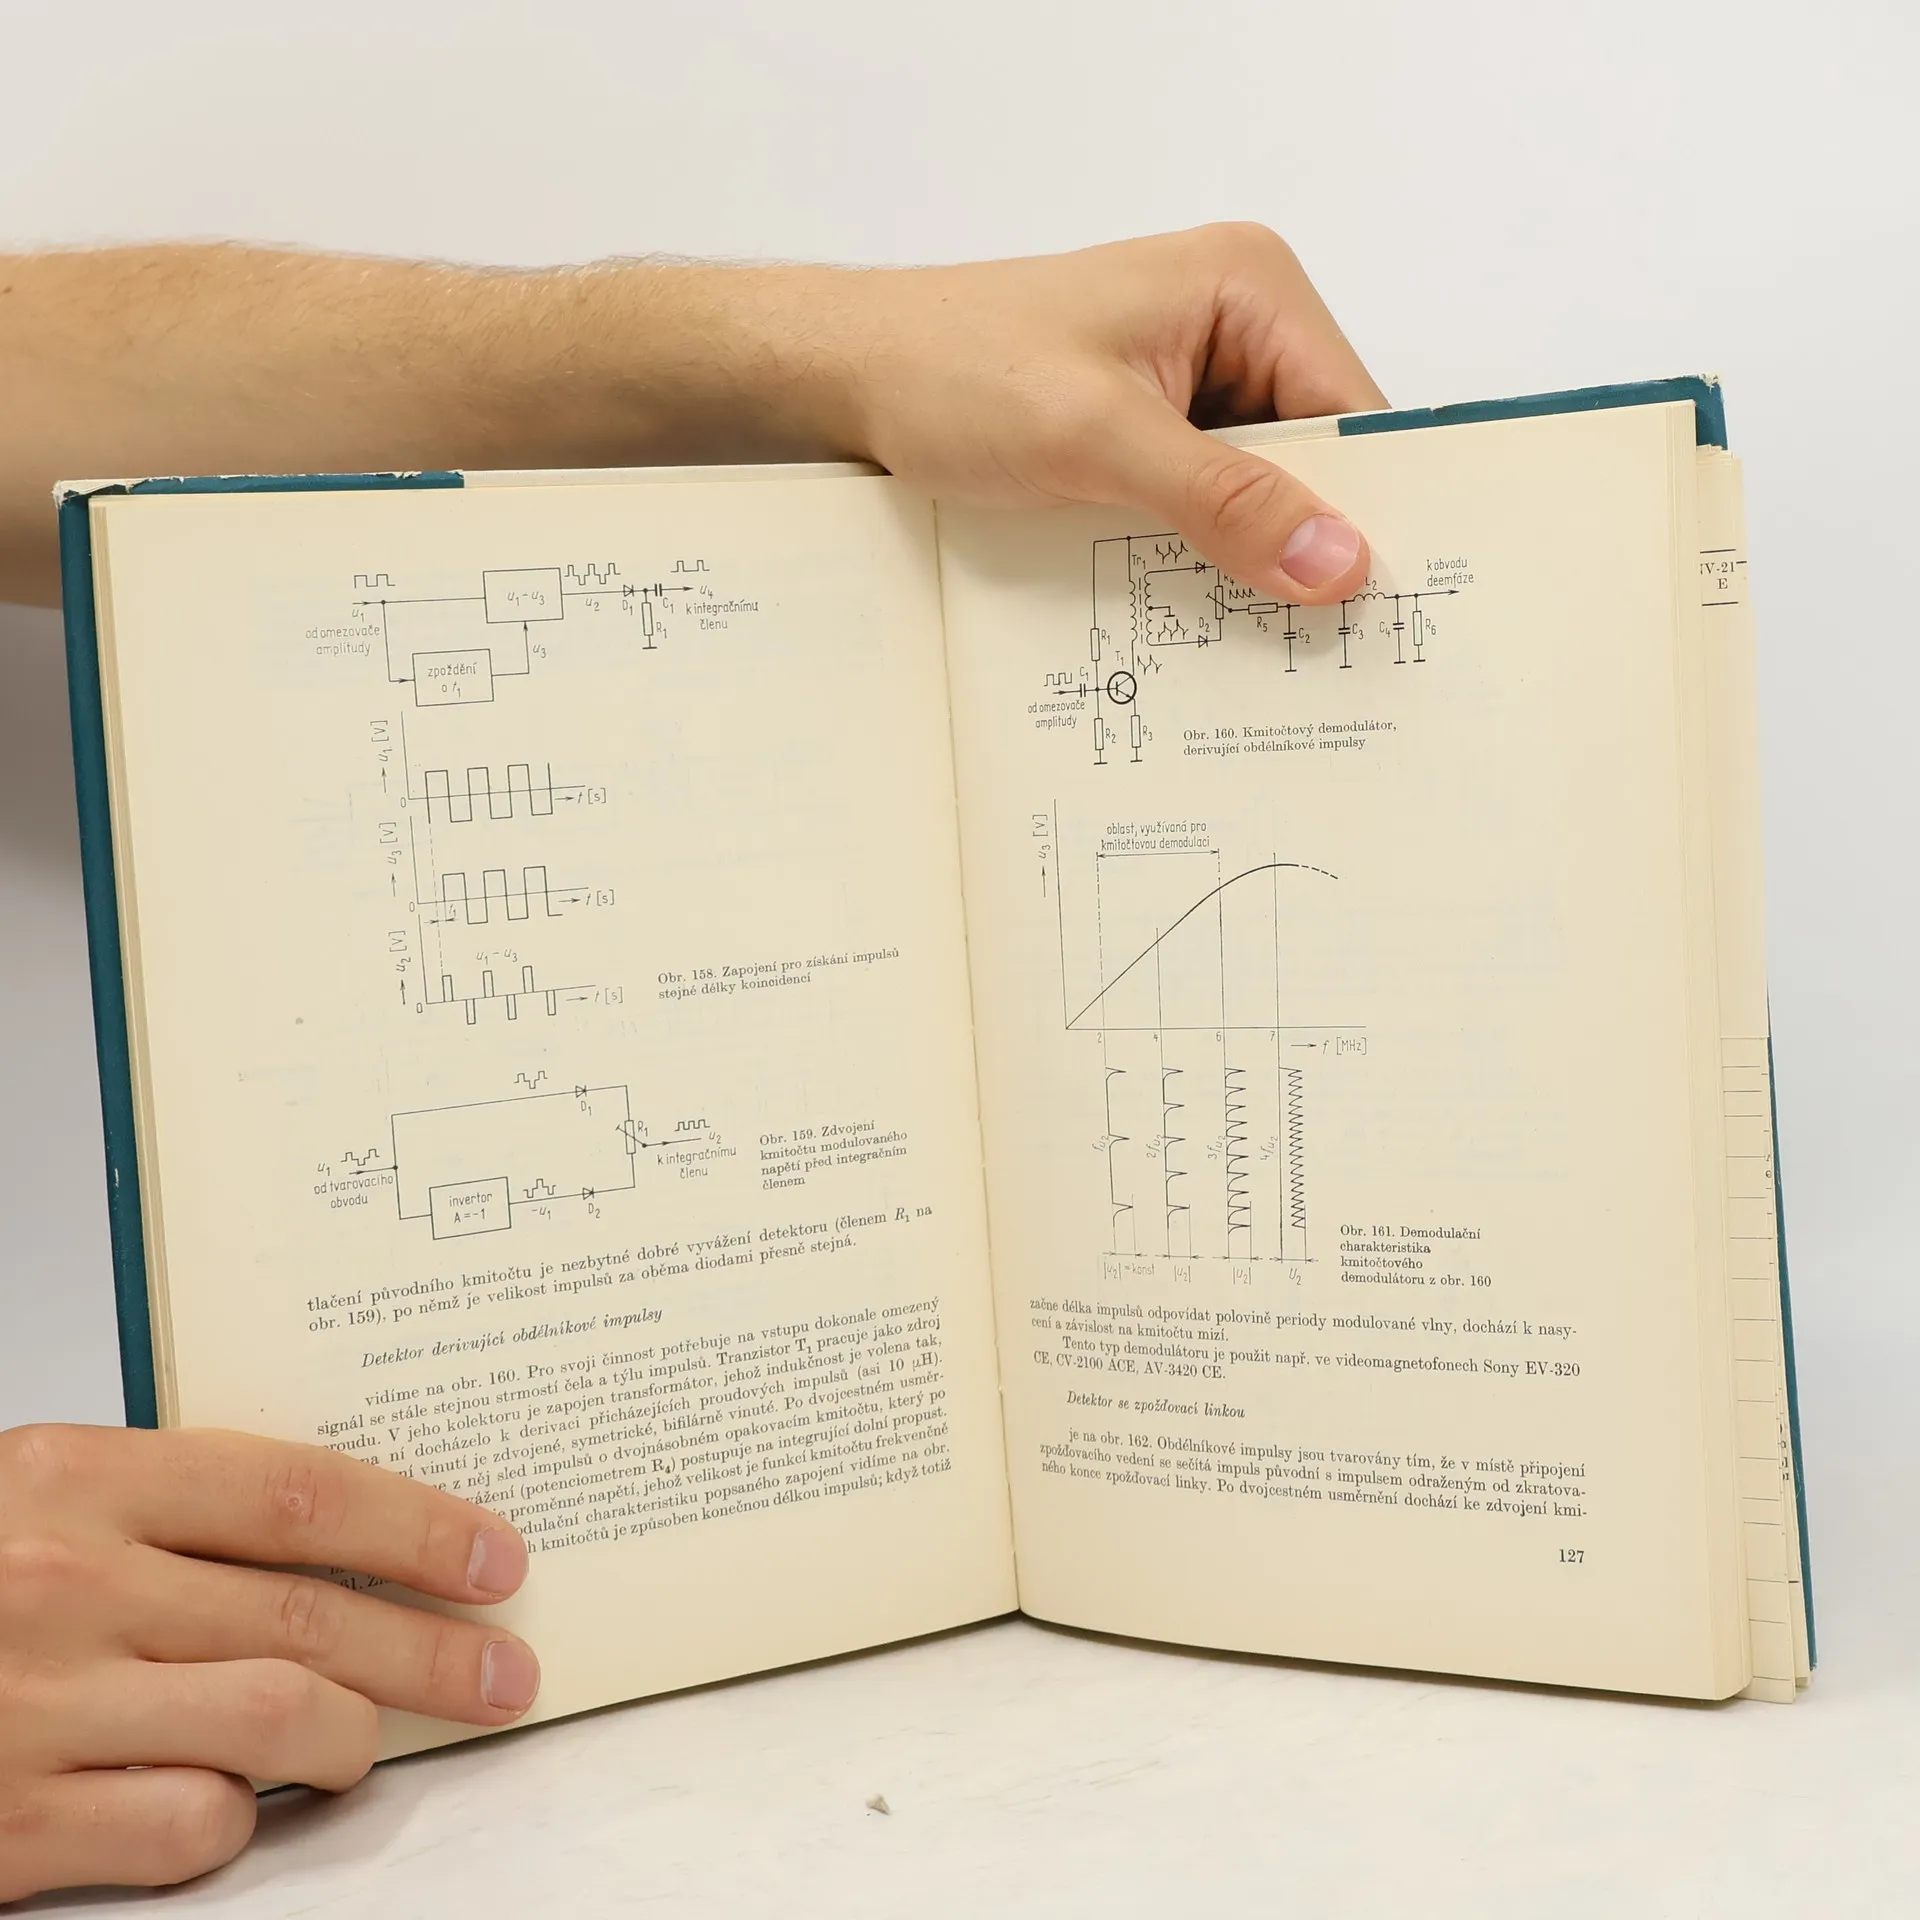 u₁
od omezovače
amplitudy
u₁ – u₃
zpoždění
o t₁
u₃
u₂
D₁
C₁
R₁
u₄
k integračnímu
členu
u₁ [V]
0
t [s]
u₃ [V]
0
t₁
t [s]
u₂ [V]
0
u₁ – u₃
t [s]
Obr. 158. Zapojení pro získání impulsů
stejné délky koincidencí
u₁
od tvarovacího
obvodu
invertor
A = –1
–u₁
D₁
D₂
R₁
u₂
k integračnímu
členu
Obr. 159. Zdvojení
kmitočtu modulovaného
napětí před integračním
členem
tlačení původního kmitočtu je nezbytné dobré vyvážení detektoru (členem R₁ na
obr. 159), po němž je velikost impulsů za oběma diodami přesně stejná.
Detektor derivující obdélníkové impulsy
vidíme na obr. 160. Pro svoji činnost potřebuje na vstupu dokonale omezený
signál se stále stejnou strmostí čela a týlu impulsů. Tranzistor T₁ pracuje jako zdroj
proudu. V jeho kolektoru je zapojen transformátor, jehož indukčnost je volena tak,
na ní docházelo k derivaci přicházejících proudových impulsů (asi 10 μH).
ní vinutí je zdvojené, symetrické, bifilárně vinuté. Po dvojcestném usměr-
z něj sled impulsů o dvojnásobném opakovacím kmitočtu, který po
vážení (potenciometrem R₄) postupuje na integrující dolní propust.
proměnné napětí, jehož velikost je funkcí kmitočtu frekvenčně
odulační charakteristiku popsaného zapojení vidíme na obr.
h kmitočtů je způsoben konečnou délkou impulsů; když totiž
k obvodu
deemfáze
Tr₁
R₄
L₂
D₂
R₅
C₂
C₃
C₄
R₆
R₁
T₁
C₁
od omezovače
amplitudy
R₂
R₃
Obr. 160. Kmitočtový demodulátor,
derivující obdélníkové impulsy
u₃ [V]
oblast, využívaná pro
kmitočtovou demodulaci
2
4
6
7
f [MHz]
fu₂
2fu₂
3fu₂
4fu₂
|u₂| = konst
|u₂|
|u₂|
U₂
Obr. 161. Demodulační
charakteristika
kmitočtového
demodulátoru z obr. 160
začne délka impulsů odpovídat polovině periody modulované vlny, dochází k nasy-
cení a závislost na kmitočtu mizí.
Tento typ demodulátoru je použit např. ve videomagnetofonech Sony EV-320
CE, CV-2100 ACE, AV-3420 CE.
Detektor se zpožďovací linkou
je na obr. 162. Obdélníkové impulsy jsou tvarovány tím, že v místě připojení
zpožďovacího vedení se sečítá impuls původní s impulsem odraženým od zkratova-
ného konce zpožďovací linky. Po dvojcestném usměrnění dochází ke zdvojení kmi-
127
V-21
E